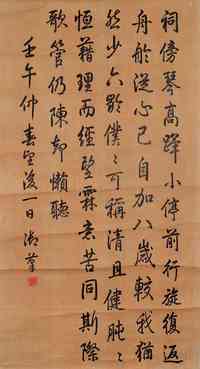 祠傍琴高蹕小停前行旋復返
舟舲從心已自加八歲較我猶
然少六齡僕〻可稱清且健肫〻
恒藉理而經望霖意苦同斯際
歌管仍陳卻懶聽
壬午仲春望後一日御筆